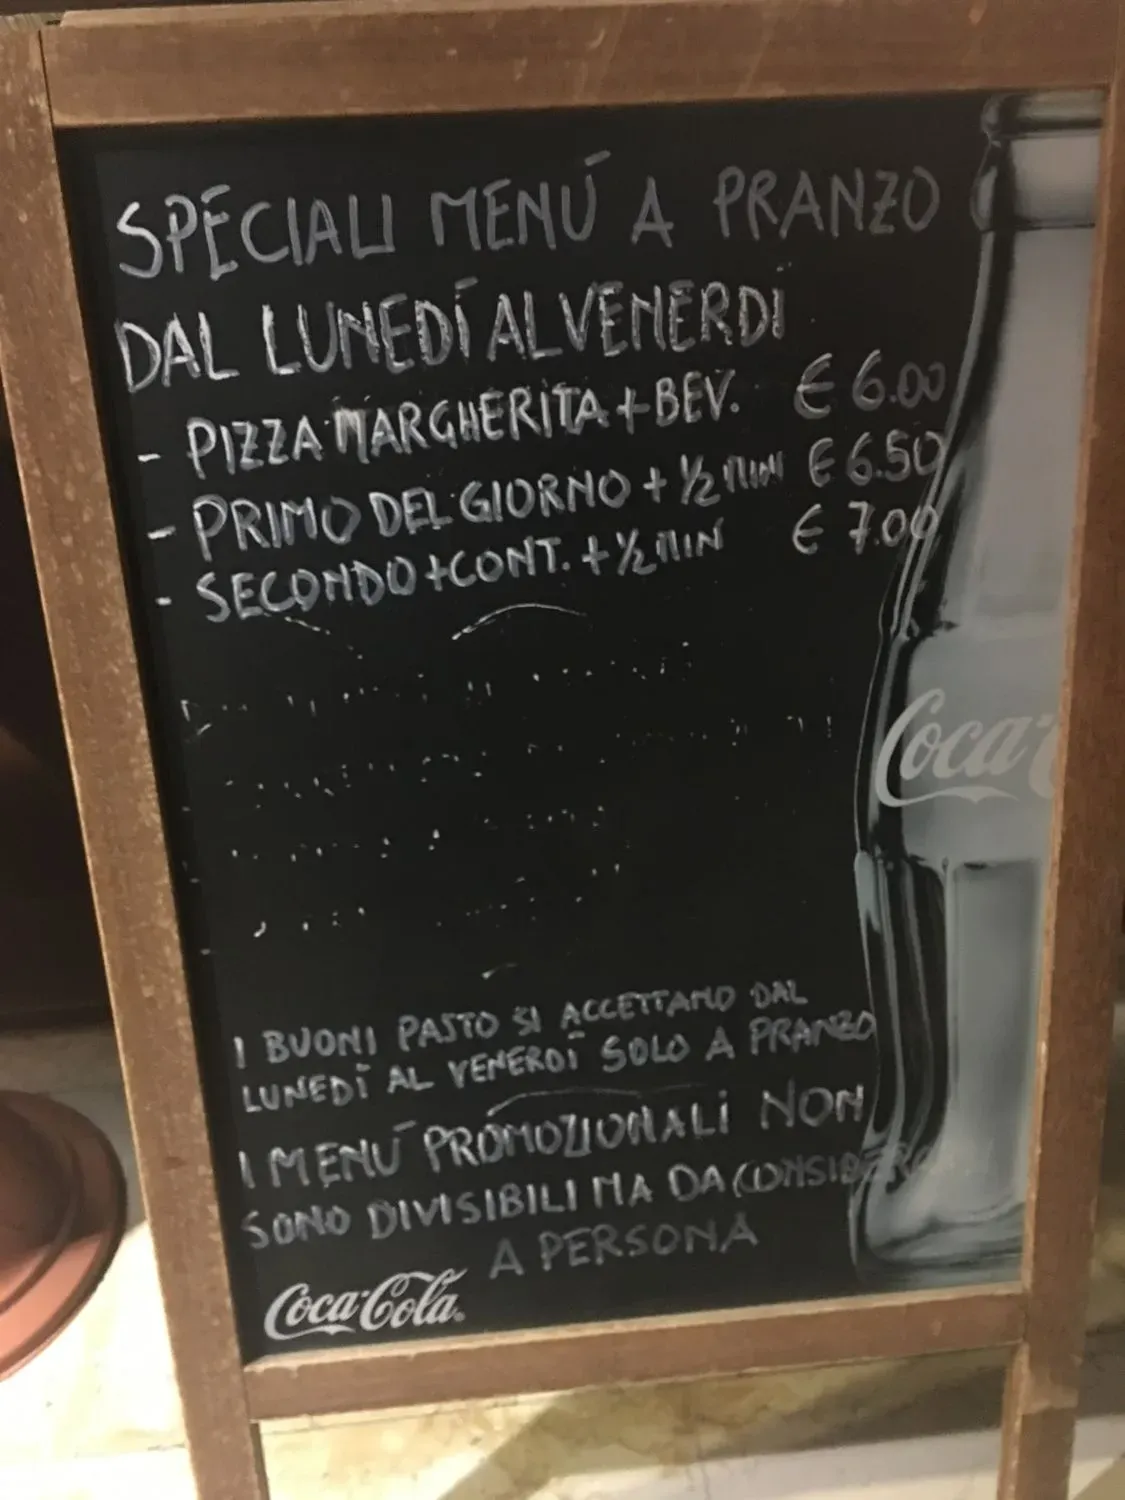 SPECIALI MENÚ A PRANZO
DAL LUNEDÍ AL VENERDÍ
- PIZZA MARGHERITA + BEV. € 6.00
- PRIMO DEL GIORNO + 1/2 MIN € 6.50
- SECONDO + CONT. + 1/2 MIN € 7.00
Coca-C
I BUONI PASTO SI ACCETTANO DAL
LUNEDÍ AL VENERDÍ SOLO A PRANZO
I MENÚ PROMOZIONALI NON
SONO DIVISIBILI MA DA CONSIDERARSI
A PERSONA
Coca-Cola